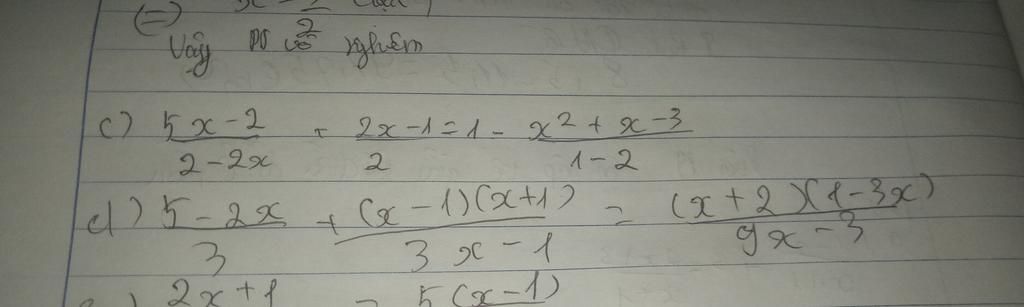 Vậy PT vô nghiệm
c) \frac{5x-2}{2-2x} + \frac{2x-1}{2} = 1 - \frac{x^2+x-3}{1-2}
d) \frac{5-2x}{3} + \frac{(x-1)(x+1)}{3x-1} = \frac{(x+2)(1-3x)}{9x-3}
2x+1 = 5(x-1)